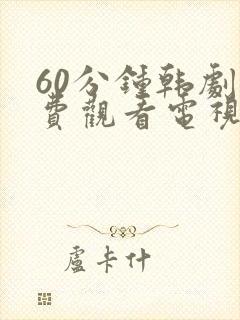 60分鍾韩劇
費觀看電視
盧卡什